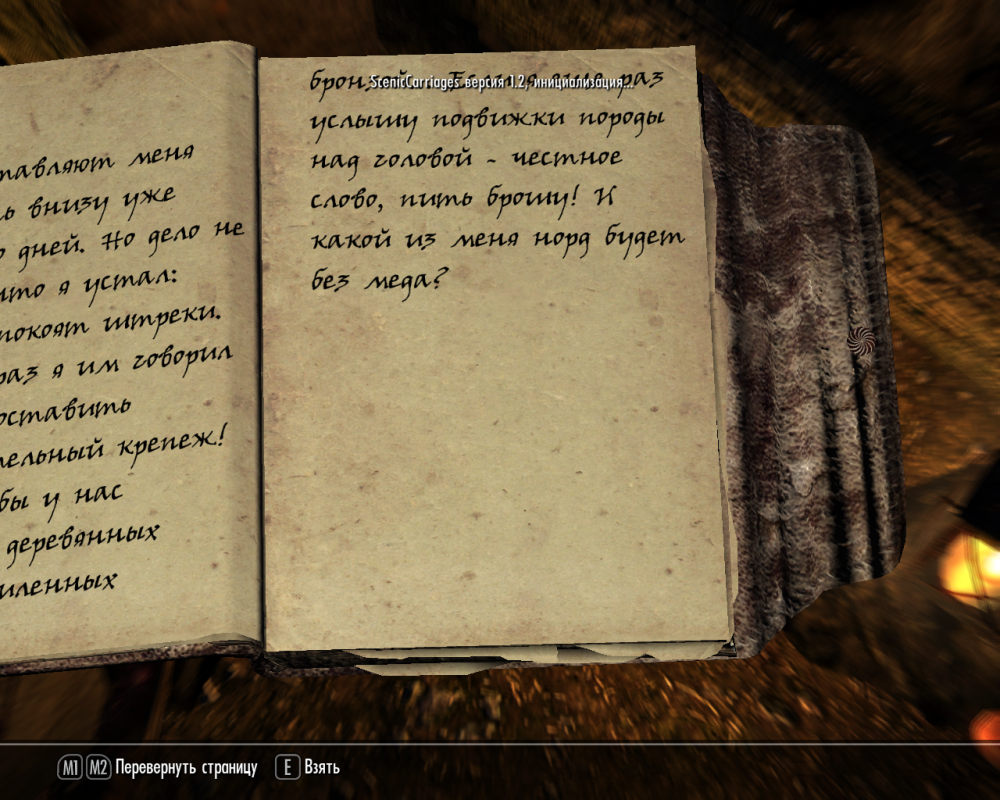 тавляют меня
ь внизу уже
о дней. Но дело не
что я устал:
покоят штреки.
раз я им говорил
оставить
тельный крепеж!
бы у нас
деревянных
иленных
бронзой. Если я еще раз
ScenicCarriages версия 1.2, инициализация...
услышу подвижки породы
над головой - честное
слово, пить брошу! И
какой из меня норд будет
без меда?
M1 M2 Перевернуть страницу E Взять